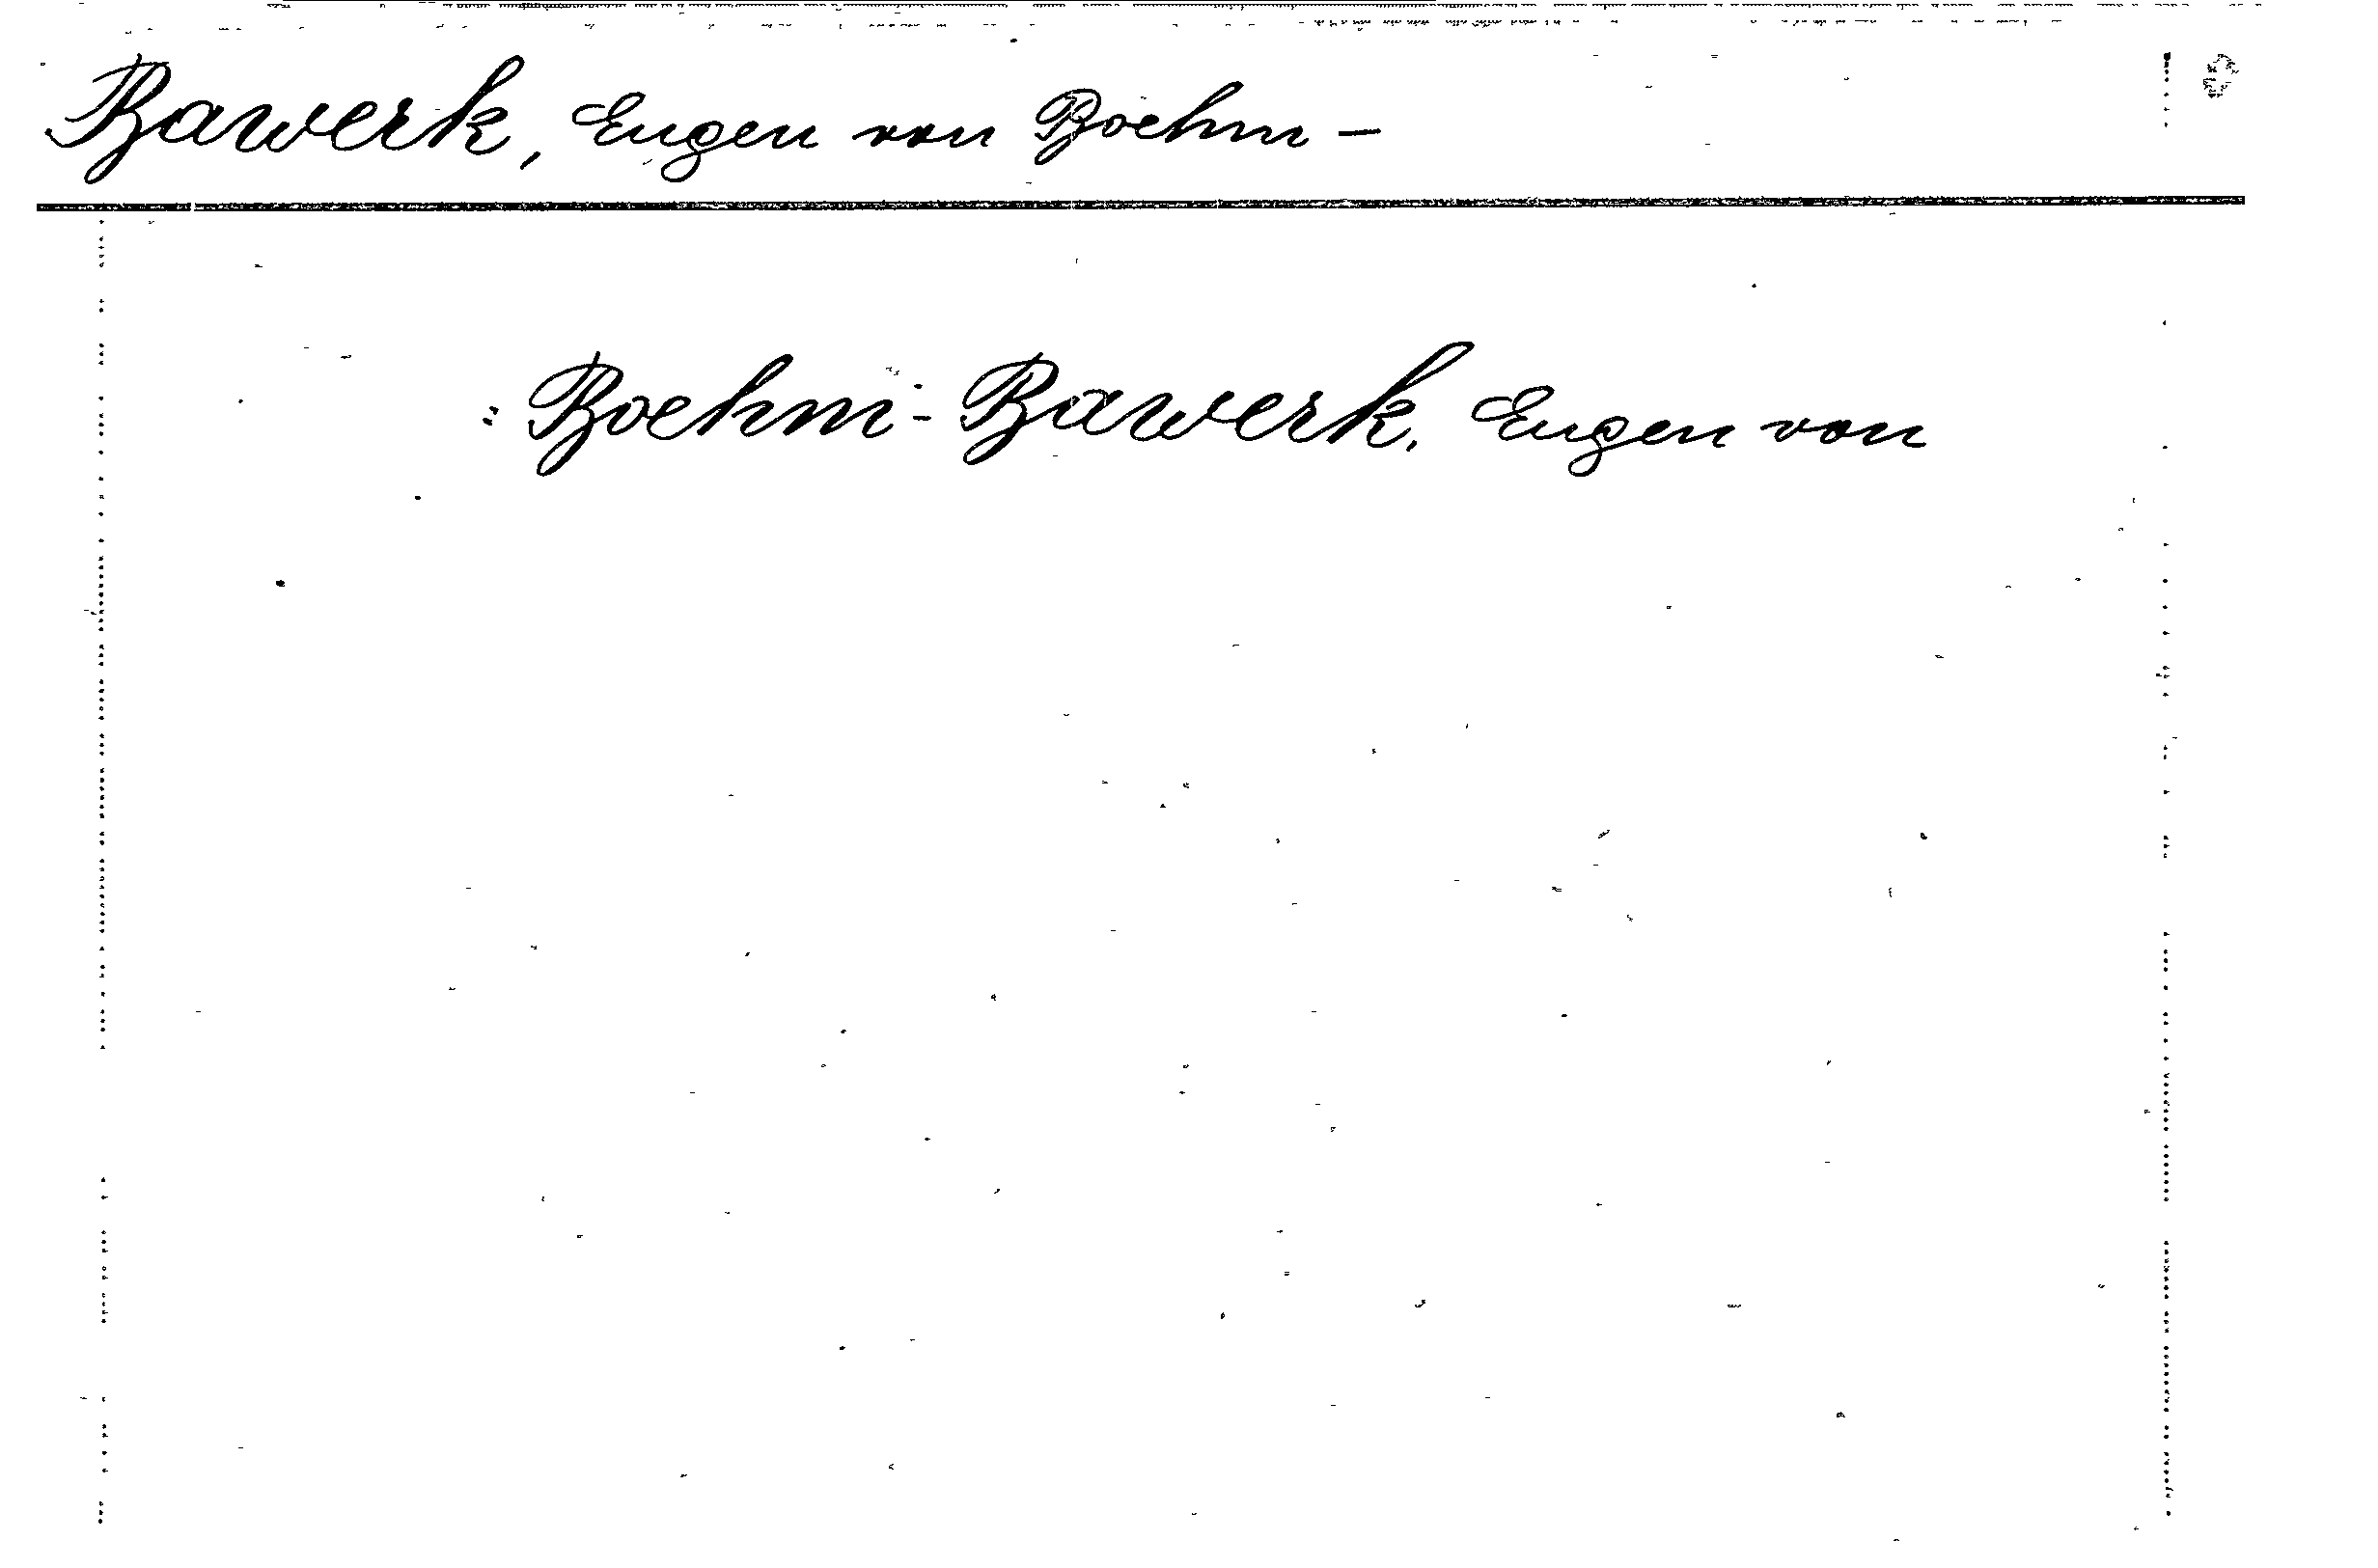 Bawerk, Eugen von Boehm-
: Boehm-Bawerk, Eugen von